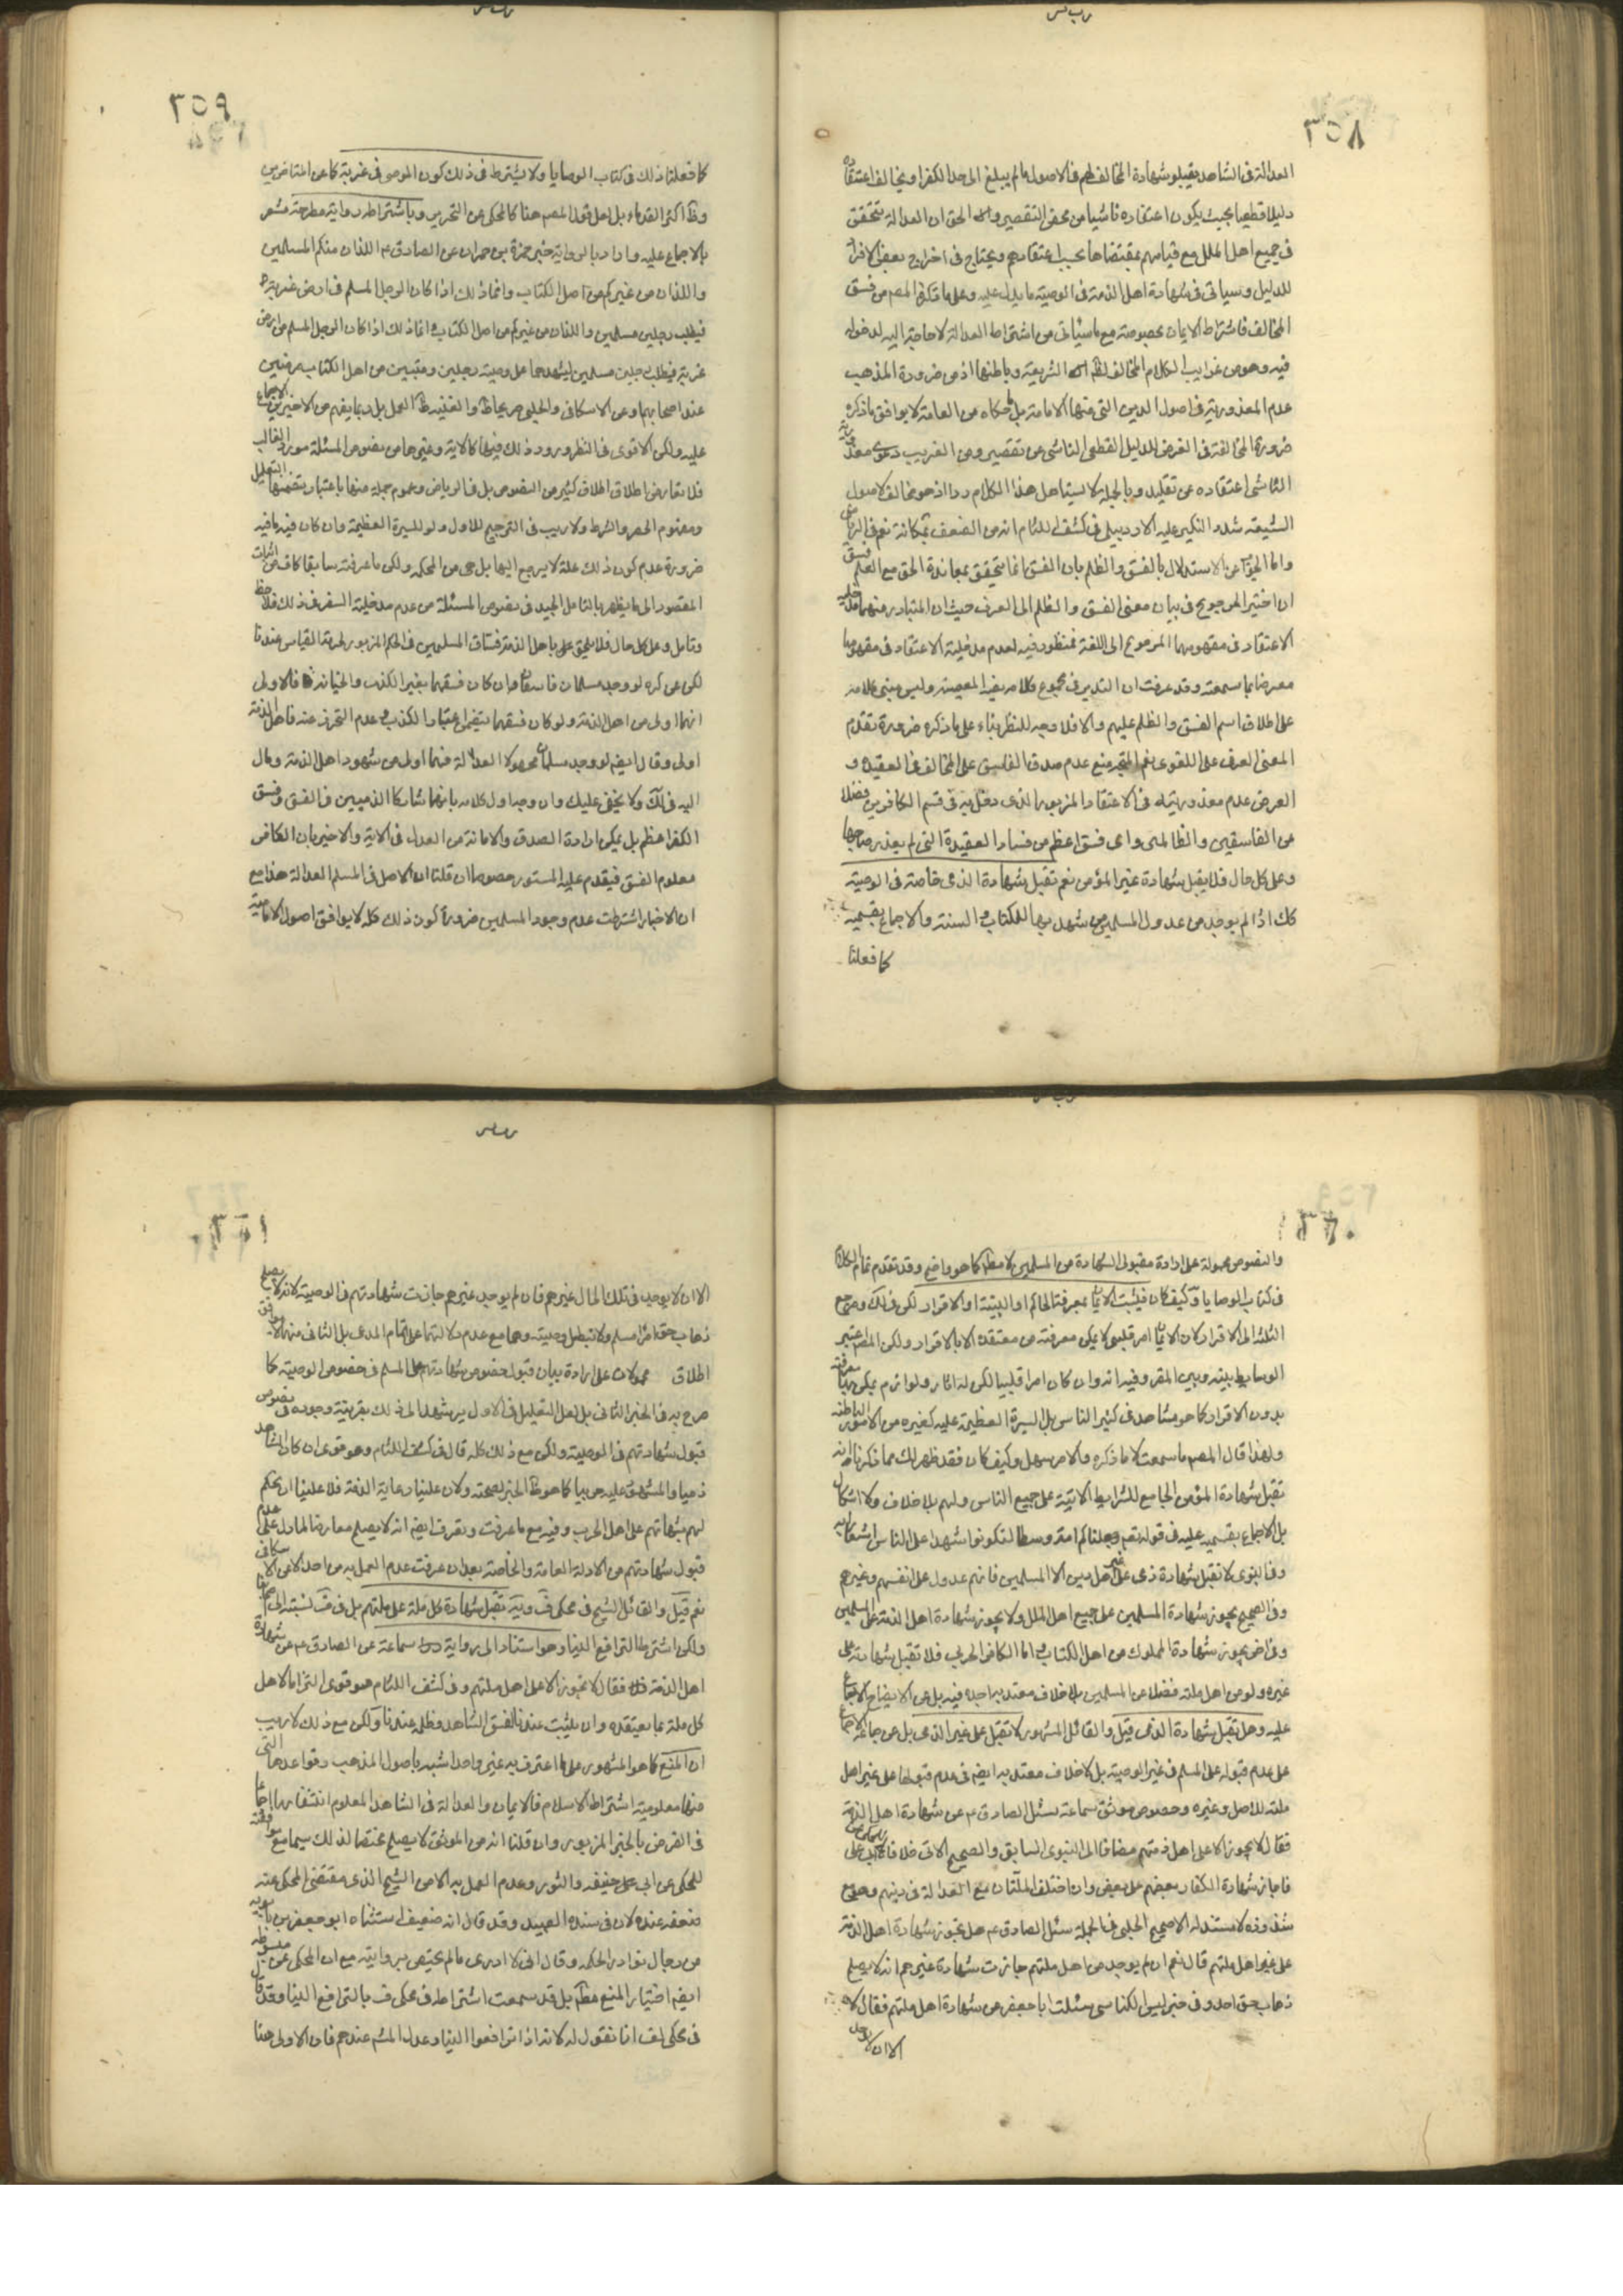 ٣٥٨
العدالة في الشاهد يقبلو شهادة المخالف لهم في الاصول ما لم يبلغ الى حد الكفر او يخالف اعتقاده
دليلا قطعيا بحيث يكون اعتقاده ناشيا من محض التقصير والحق ان العدالة تتحقق
في جميع اهل الملل مع قيامهم بمقتضاها بحسب اعتقادهم ويحتاج في اخراج بعض الافراد
للدليل وسياتي في شهادة اهل الذمة في الوصية ما يدل عليه وعلى ما ذكره المص من فسق
المخالف فاشتراط الايمان بخصوصه مع ما سيأتي من اشتراط العدالة لا حاجة اليه لدخوله
فيه وهو من غرايب الكلام المخالف لظاهر الشريعة وباطنها اذ من ضرورة المذهب
عدم المعذورية في اصول الدين التي منها الامامة بل ما حكاه من العامة لا يوافق ما ذكره
ضرورة المخالفة في الفرض للدليل القطعي الناشي عن تقصير ومن الغريب دعوى معذورية
الناشي اعتقاده عن تقليد وبالجملة لا يستاهل هذا الكلام ردا اذ هو مخالف لاصول
الشيعة شدد النكير عليه الاردبيلي في كشف اللثام انه من الضعف بمكانة نعم في الرياض
واما الجواب عن الاستدلال بالفسق والظلم بان الفسق انما يتحقق بمعاندة الحق مع العلم
ان اختير المرجوح في بيان معنى الفسق والظلم الى العرف حيث ان المتبادر منهما مدخلية
الاعتقاد في مفهومهما المرجوح الى اللغة فمنظور فيه لعدم مدخلية الاعتقاد في مفهومهما
معرضا بما سمعته وقد عرفت ان التدبر في مجموع كلامه يفيد المعصية وليس مبني كلامه
على اطلاق اسم الفسق والظلم عليهم والا فلا وجه للنظر بناء على ما ذكره ضرورة تقدم
المعنى العرفي على اللغوى نعم المتجه منع عدم صدق الفاسق على المخالف في العقيدة و
الغرض عدم معذوريته في الاعتقاد المزبور الذي دخل به في قسم الكافرين فضلا
عن الفاسقين والظالمين واى فسق اعظم من فساد العقيدة التي لم يعذر صاحبها
وعلى كل حال فلا يقبل شهادة غير المؤمن نعم تقبل شهادة الذمي خاصة في الوصية
كك اذا لم يوجد من عدول المسلمين من يشهد بها للكتاب والسنة والاجماع بقسميه
كما فعلنا
٣٥٩
كما فعلنا ذلك في كتاب الوصايا ولا يشترط في ذلك كون الموصى في غربة كما عن المتاخرين
وظ اكثر القدماء بل لعل قول المص هنا كالمحكي عن التحرير وباشتراطه رواية مطرحة مشعر
بالاجماع عليه واراد بالرواية خبر حمزة بن حمران عن الصادق ع اللذان منكم المسلمين
واللذان من غيركم من اهل الكتاب وانما ذلك اذا كان الرجل المسلم في ارض غربة
فيطلب رجلين مسلمين واللذان من غيركم من اهل الكتاب وانما ذلك اذا كان الرجل المسلم من ارض
غربة فيطلب رجلين مسلمين ليشهدهما على وصيته رجلين ذميين من اهل الكتاب مرضيين
عند اصحابهما وعن الاسكافي والحلبي صريحا وظ والغنية ظ العمل بل ربما يفهم من الاخيرين الاجماع
عليه ولكن الاقوى في النظر ورود ذلك فيها كالاية وغيرها من نصوص المسئلة مورد الغالب
فلا تعارض اطلاق اطلاق كثير من النصوص بل في الرياض وعموم جملة منها باعتبار يتضمنها التعليل
ومفهوم الحصر والشرط ولا ريب في الترجيح للاول ولو للسيرة العظيمة وان كان فيه ما فيه
ضرورة عدم كون ذلك علة لا يرجع اليها بل هي من الحكم ولكن ما عرفته سابقا كاف في اثبات
المقصود الى ما يظهر بالتامل الجيد في نصوص المسئلة من عدم مدخلية السفر في ذلك فلاحظ
وتامل وعلى كل حال فلا يلحق باهل الذمة فساق المسلمين في الحكم المزبور لحرمة القياس عندنا
لكن عن كره لو وجد مسلمان فاسقان فان كان فسقهما بغير الكذب والخيانة فالاولى
انهما اولى من اهل الذمة ولو كان فسقهما يتضمن اعتبار الكذب وعدم التحرز عنه فاهل الذمة
اولى وقال ايضم لو وجد مسلمان مجهولا العدالة فهما اولى من شهود اهل الذمة ومال
اليه في لك ولا يخفى عليك وان وجه اول كلامه بانهما شاركا الذميين في الفسق وفسق
الكفر اعظم بل يمكن ارادة الصدق والامانة من العدل في الاية والاخير بان الكافر
معلوم الفسق فيقدم عليه المستور خصوصا ان قلنا ان الاصل في المسلم العدالة هذا مع
ان الاخبار اشترطت عدم وجود المسلمين ضرورة كون ذلك كله لا يوافق اصول الامامية
٣٦٠
والنصوص محمولة على ارادة مقبولى الشهادة من المسلمين لا مطلقا كما هو واضح وقد تقدم تمام الكلام
في كتاب الوصايا وكيف كان فيثبت الايمان بمعرفة الحاكم او البينة او الاقرار لكن في لك ومرجع
الثلثة الى الاقرار لان الايمان امر قلبي لا يمكن معرفته من معتقده الا بالاقرار ولكن المص اعتبر
الوسايط بينه وبين المقر وفيه انه وان كان امرا قلبيا لكن له اثار ولوازم يمكن بها معرفته
بدون الاقرار كما هو مشاهد في كثير الناس بل السيرة العظيمة عليه كغيره من الامور الباطنة
ولهذا قال المص ما سمعت لا ما ذكره والامر سهل وكيف كان فقد ظهر لك مما ذكرنا انه
تقبل شهادة المؤمن الجامع للشرايط الاتية على جميع الناس ولهم بلا خلاف ولا اشكال
بل الاجماع بقسميه عليه في قوله تعم وجعلناكم امة وسطا لتكونوا شهداء على الناس اشعار به
وفي النبوى لا تقبل شهادة ذى على غير اهل دين الا المسلمين فانهم عدول على انفسهم وغيرهم
وفي الصحيح يجوز شهادة المسلمين على جميع اهل الملل ولا يجوز شهادة اهل الذمة على المسلمين
وفي اخر يجوز شهادة المملوك من اهل الكتاب واما الكافر الحربي فلا تقبل شهادته على
غيره ولو من اهل ملته فضلا عن المسلمين بلا خلاف معتد به اجده فيه بل عن الايضاح الاجماع
عليه وهل تقبل شهادة الذمي قيل والقائل المشهور لا تقبل على غير الذمي بل عن جماعة الاجماع
على عدم قبوله على المسلم في غير الوصية بل لا خلاف معتد به ايضم في عدم قبولها على غير اهل
ملته للاصل وغيره وخصوص موثق سماعة سئل الصادق ع عن شهادة اهل الذمة
فقال لا يجوز الا على اهل ذمتهم مضافا الى النبوى السابق والصحيح الاتي خلافا للمحكي عن ابي على
فاجاز شهادة الكفار بعضهم على بعض وان اختلف الملتان مع العدالة في دينهم وهو مع
شذوذه لا مستند له الا صحيح الحلبي في الجملة سئل الصادق ع هل تجوز شهادة اهل الذمة
على غير اهل ملتهم قال نعم ان لم يوجد من اهل ملتهم جازت شهادة غيرهم انه لا يصلح
ذهاب حق احد وفي خبر ضريس الكناسي سئلت ابا جعفر عن شهادة اهل ملتهم فقال لا
الا ان لا يوجد
٣٦١
الا ان لا يوجد في تلك الحال غيرهم فان لم يوجد غيرهم جازت شهادتهم في الوصية لانه لا يصلح
ذهاب حق امرأ مسلم ولا تبطل وصيته وهما مع عدم دلالتهما على تمام المدعى بل الثاني منهما لا يوافق
اطلاق محمولان على ارادة بيان قبول خصوص شهادتهم على المسلم في خصوص الوصية كما
صرح به في الخبر الثاني بل لعل التعليل في الاول يرشد الى ذلك بقرينة وجوده في نصوص
قبول شهادتهم في الوصية ولكن مع ذلك كله قال في كشف اللثام وهو قوى ان كان الشاهد
ذميا والمشهود عليه حربيا كما هو ظ الخبر لصحته ولان علينا رعاية الذمة فلا علينا ان نحكم
لهم بشهادتهم على اهل الحرب وفيه مع ما عرفت وتعرف ايضم انه لا يصلح معارضا لما دل على عدم
قبول شهادتهم من الادلة العامة والخاصة بعد ان عرفت عدم العمل به من احد الا عن الاسكافي
نعم قيل والقائل الشيخ في محكي ف ويه تقبل شهادة كل ملة على ملتهم بل في ف نسبته الى اصحابنا
ولكن اشترط الترافع الينا وهو استنادا الى رواية سماعة عن الصادق ع عن شهادة
اهل الذمة فقال لا تجوز الا على اهل ملتهم وفي كشف اللثام هو قوى التزاما لاهل
كل ملة بما يعتقده وان لم يثبت عندنا لفسق الشاهد وظلمه عندنا ولكن مع ذلك لا ريب
ان المنع كما هو المشهور على ما اعترف به غير واحد اشبه باصول المذهب وقواعدها التي
منها معلومية اشتراط الاسلام والايمان والعدالة في الشاهد المعلوم انتفاءها اجماعا
في الفرض بالخبر المزبور وان قلنا انه من الموثق لا يصلح مخصصا لذلك سيما مع موافقته
للمحكي عن ابي حنيفه والثورى وعدم العمل به الا من الشيخ الذي مقتضى المحكي عنه
ضعفه عنده لان في سنده العبيدى وقد قال انه ضعيف استثناه ابو جعفر بن بابويه
من رجال نوادر الحكمة وقال اني لا اروى ما لم يختص بروايته مع ان المحكي عن مبسوطه
ايضم اختيار المنع مطلقا بل قد سمعت اشتراطه في محكي ف بالترافع الينا وقد قال
في محكي لف انا نقول له لانه اذا ترافعوا الينا وعدل الشهود عندهم فان الاولى هنا